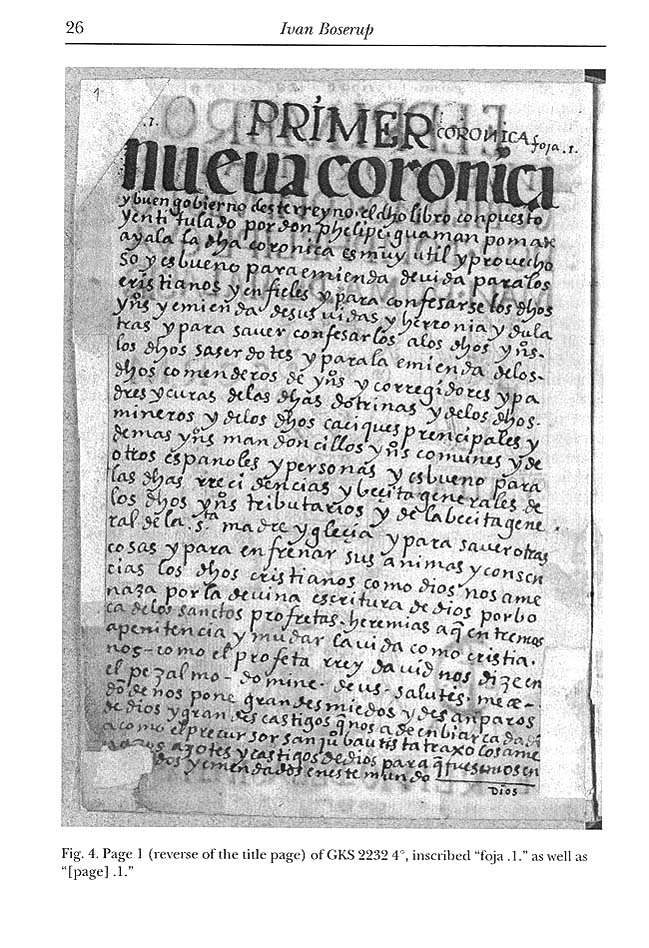 26
Ivan Boserup
1
.1.
PRIMER CORONICA foja .1.
nueua coronica
y buen gobierno deste rreyno. el dho libro conpuesto
y entitulado por don phelipe guaman poma de
ayala la dha coronica es muy util y provecho
so y es bueno para emienda de uida para los
cristianos y enfieles y para confesarse los dhos
yns y emienda de sus uidas y herronia y dula
tras y para sauer confesarlos a los dhos yns.
los dhos saserdotes y para la emienda de los-
dhos comenderos de yns y corregidores y pa
dres y curas de las dhas dotrinas y de los dhos.
mineros y de los dhos caciques prencipales y
demas yns mandoncillos yns comunes y de
otros españoles y personas y es bueno para
las dhas rrecidencias y becita generales de
los dhos yns tributarios y de la becita gene
ral de la .sta madre yglecia y para sauer otras
cosas y para enfrenar sus animas y consen
cias los dhos cristianos como dios nos ame
naza por la deuina escritura de dios por bo
ca de los sanctos profretas. heremias a q̃ entremos
a penitencia y mudar la uida como cristia.
nos - como el profeta rrey dauid nos dize en
el pezalmo - domine. deus. salutis. meae -
dõde nos pone grandes miedos y desanparos
de dios y grandes castigos q̃ nos a de enbiar cada dia
a como el precursor san jũ bautista traxo los ame
azotes y castigos de dios para q̃ fuesemos en
dos y emendados en este mundo
DIOS
Fig. 4. Page 1 (reverse of the title page) of GKS 2232 4°, inscribed “foja .1.” as well as
“[page] .1.”